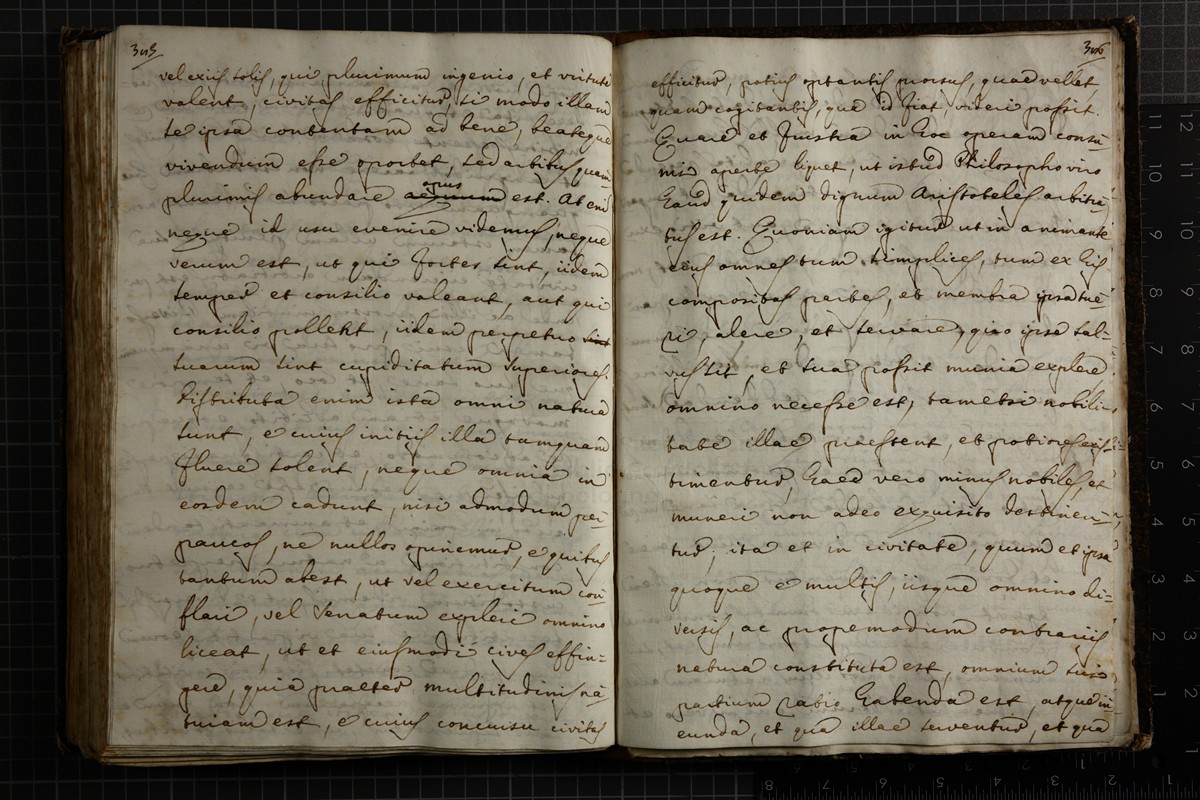 305
vel ex iis solis, qui plurimum ingenio, et virtute
valent, civitas efficitur, si modo illam
se ipsa contentam ad bene, beateque
vivendum esse oportet, sed artibus quam
plurimis abundare aequum opus est. At eni
neque id usu evenire videmus, neque
verum est, ut qui fortes sint, iidem
semper et consilio valeant, aut qui
consilio pollent, iidem perpetuo sint
suarum sint cupiditatum superiores.
Distributa enim ista omni natura
sunt, e cuius initiis illa tamquam
fluere solent, neque omnia in
eosdem cadunt, nisi admodum per
paucos, ne nullos opinemur, e quibus
tantum abest, ut vel exercitum con-
flari, vel venatum expleri omnino
liceat, ut et eiusmodi cives effin=
gere, quia praeter multitudinis na
turam est, e cuius concursu civitas
306
efficitur, potius optantis prorsus, quae vellet,
quam cogitantis, quae id fiat, videri possit.
Quare et frustra in hoc operam consu
misse aperte liquet, ut istud Philosopho viro
haud quidem dignum Aristoteles arbitra
tus est. Quoniam igitur ut in animante
eius omnes tum simplices, tum ex his
compositas partes, et membra ipsa tue
ri, alere, et servare, quo ipse sal=
vus sit, et sua possit munia explere
omnino necesse est, tametsi nobili
tate illae praestent, et potiores exis=
timentur, haec vero minus nobiles, et
muneri non adeo exquisito destinen=
tur; ita et in civitate, quum et ipsa
quoque e multis, iisque omnino di=
versis, ac propemodum contrariis
natura constituta est, omnium suo
partium ratio habenda est, atque in
eunda, et qua illae serventur, et qua